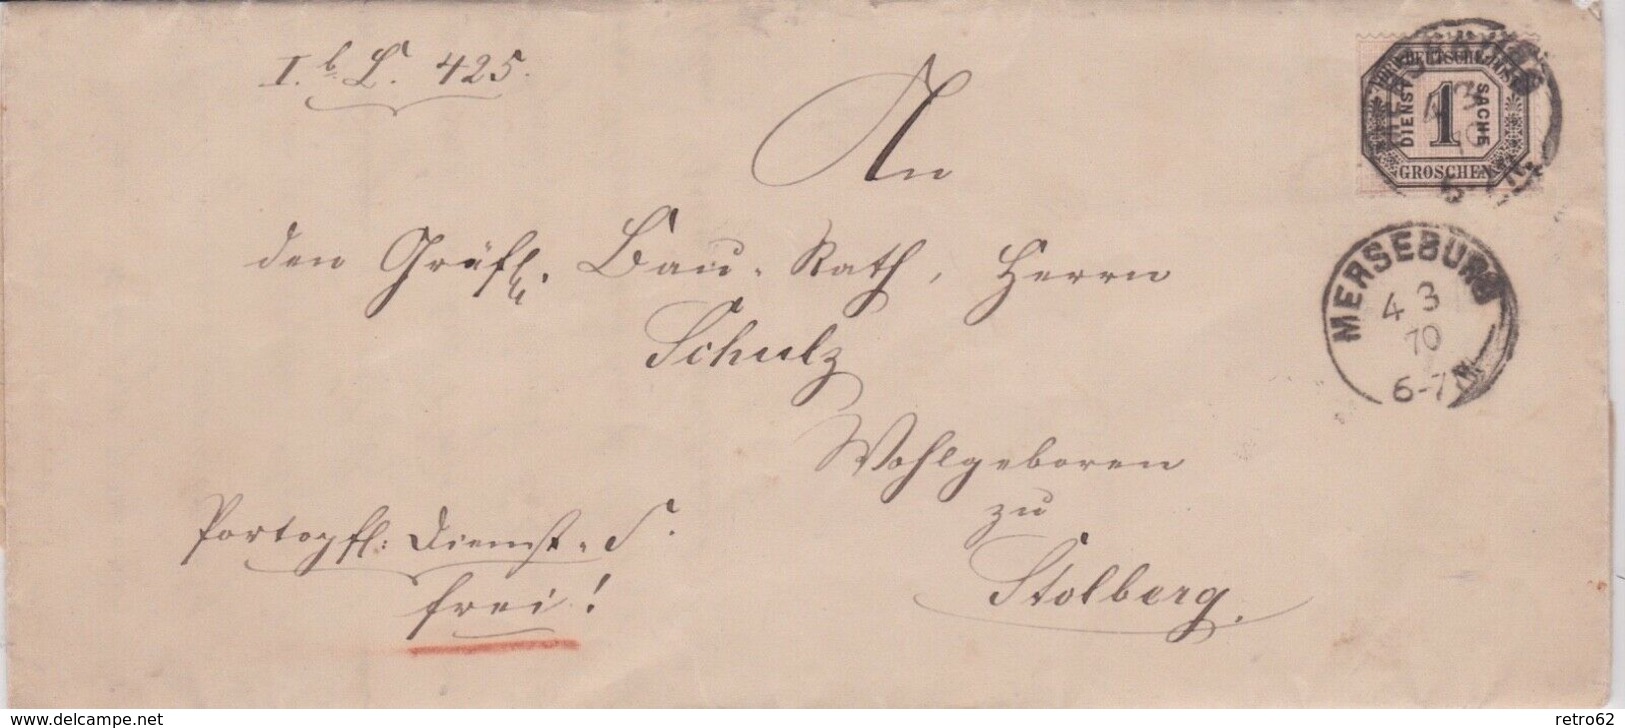 I. b. L. 425.
NORDDEUTSCHE POST
DIENST SACHE
1
GROSCHEN
MERSEBURG
4 3
70
An
den Gräfl. Bau-Rath, Herrn
Schulz
MERSEBURG
4 3
70
6-7 N.
Wohlgeboren
zu
Stolberg.
Portopfl: Dienst-S.
frei!
www.delcampe.net
retro62